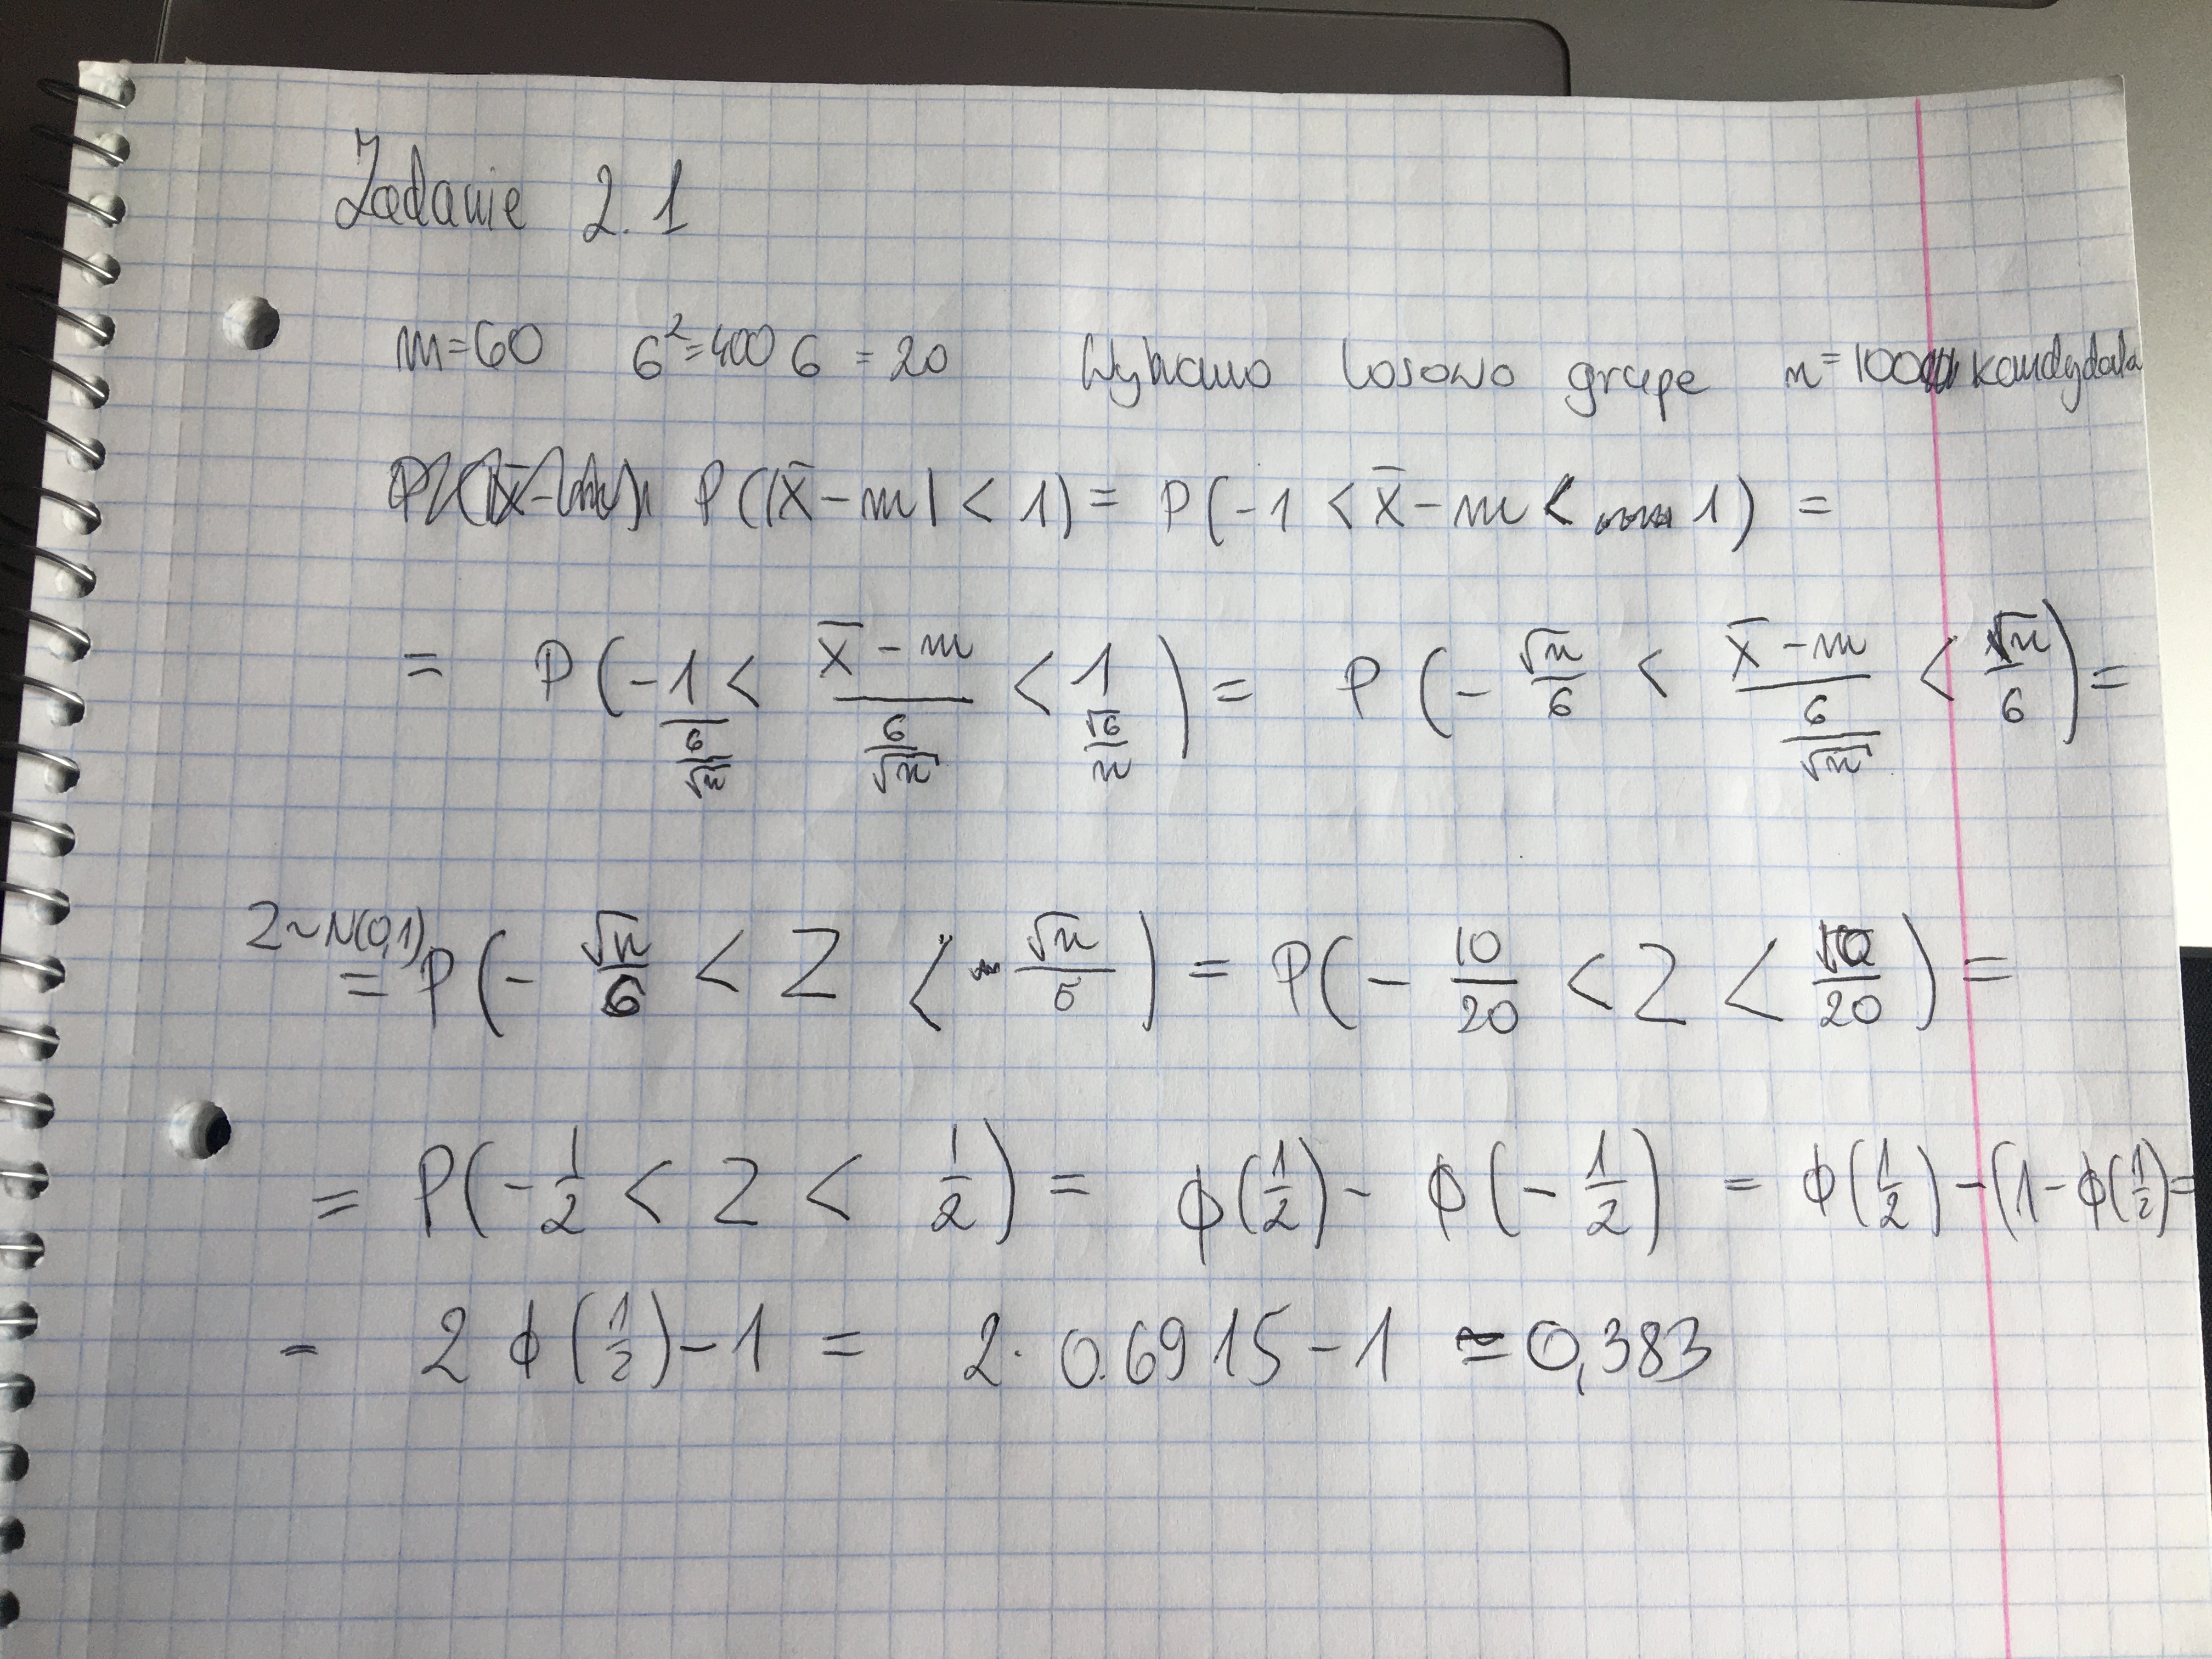 Zadanie 2.1
m=60 σ²=400 σ=20 Wybrano losowo grupę n=100 kandydata
P(|X̄-m|<1) = P(-1 < X̄-m < 1) =
= P(-1/(σ/√n) < (X̄-m)/(σ/√n) < 1/(σ/√n)) = P(-√n/σ < (X̄-m)/(σ/√n) < √n/σ) =
Z~N(0,1)
= P(-√n/σ < Z < √n/σ) = P(-10/20 < Z < 10/20) =
= P(-1/2 < Z < 1/2) = ϕ(1/2) - ϕ(-1/2) = ϕ(1/2) - (1-ϕ(1/2) =
= 2ϕ(1/2)-1 = 2·0.6915-1 = 0,383